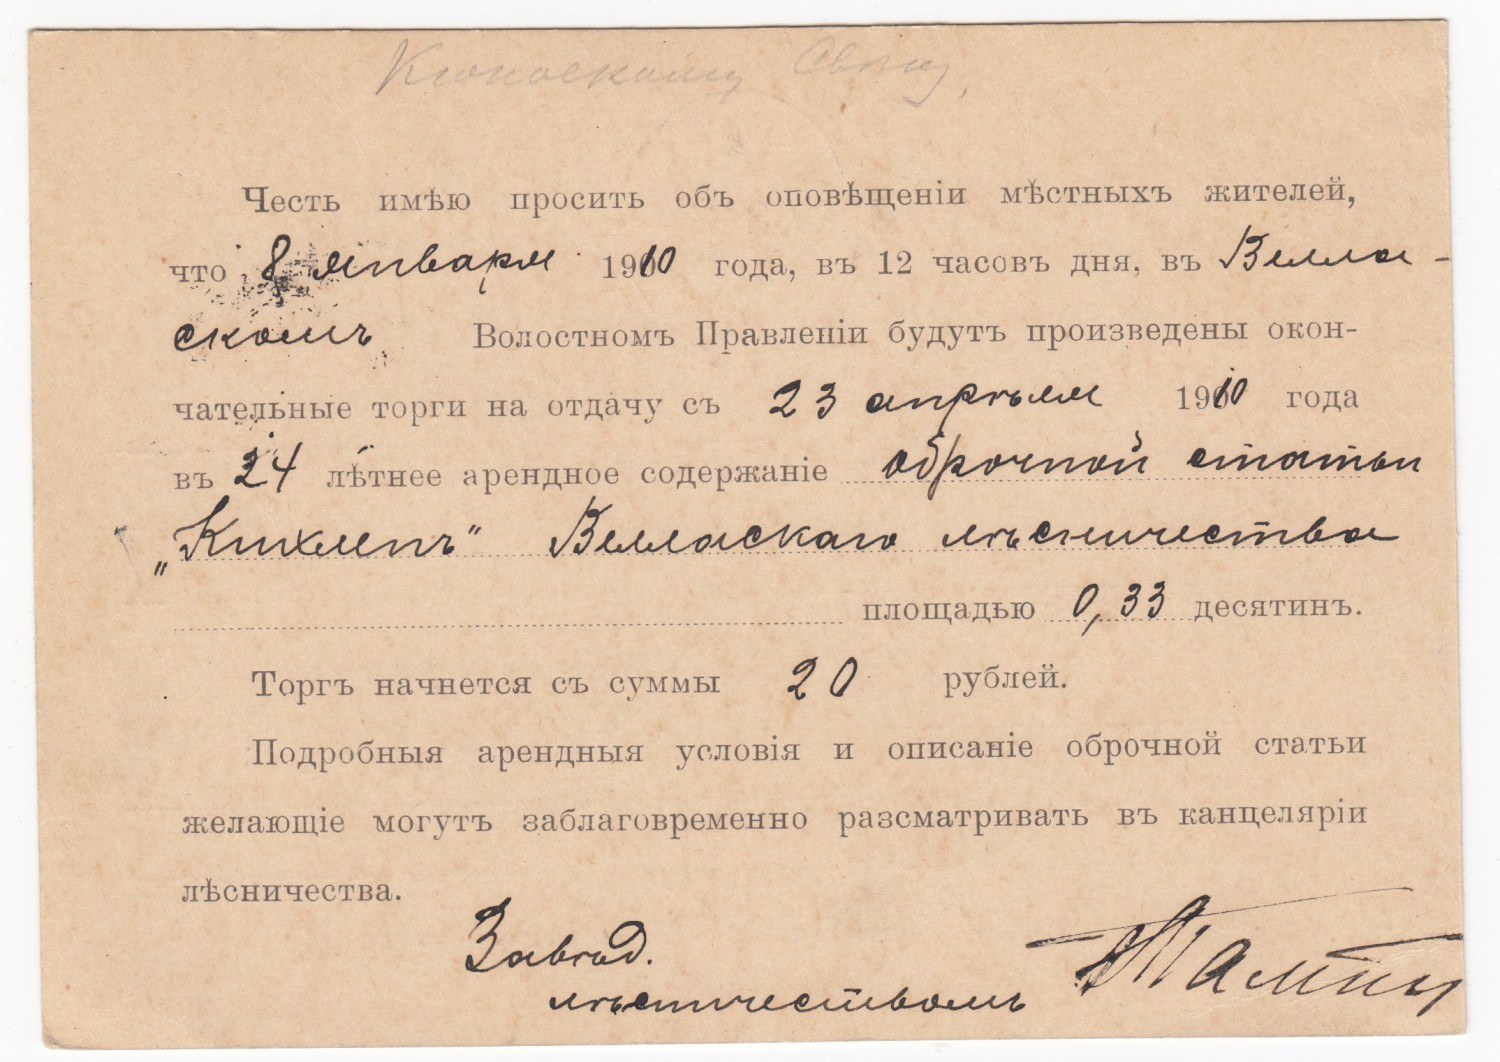 Честь имѣю просить объ оповѣщеніи мѣстныхъ жителей,
что 8 января 1910 года, въ 12 часовъ дня, въ Велла-
скомъ Волостномъ Правленіи будутъ произведены окон-
чательные торги на отдачу съ 23 апрѣля 1910 года
въ 24 лѣтнее арендное содержаніе оброчной статьи
„Кихлепъ“ Велласкаго лѣсничества
площадью 0,33 десятинъ.
Торгъ начнется съ суммы 20 рублей.
Подробныя арендныя условія и описаніе оброчной статьи
желающіе могутъ заблаговременно разсматривать въ канцеляріи
лѣсничества.
Завѣд.
лѣсничествомъ